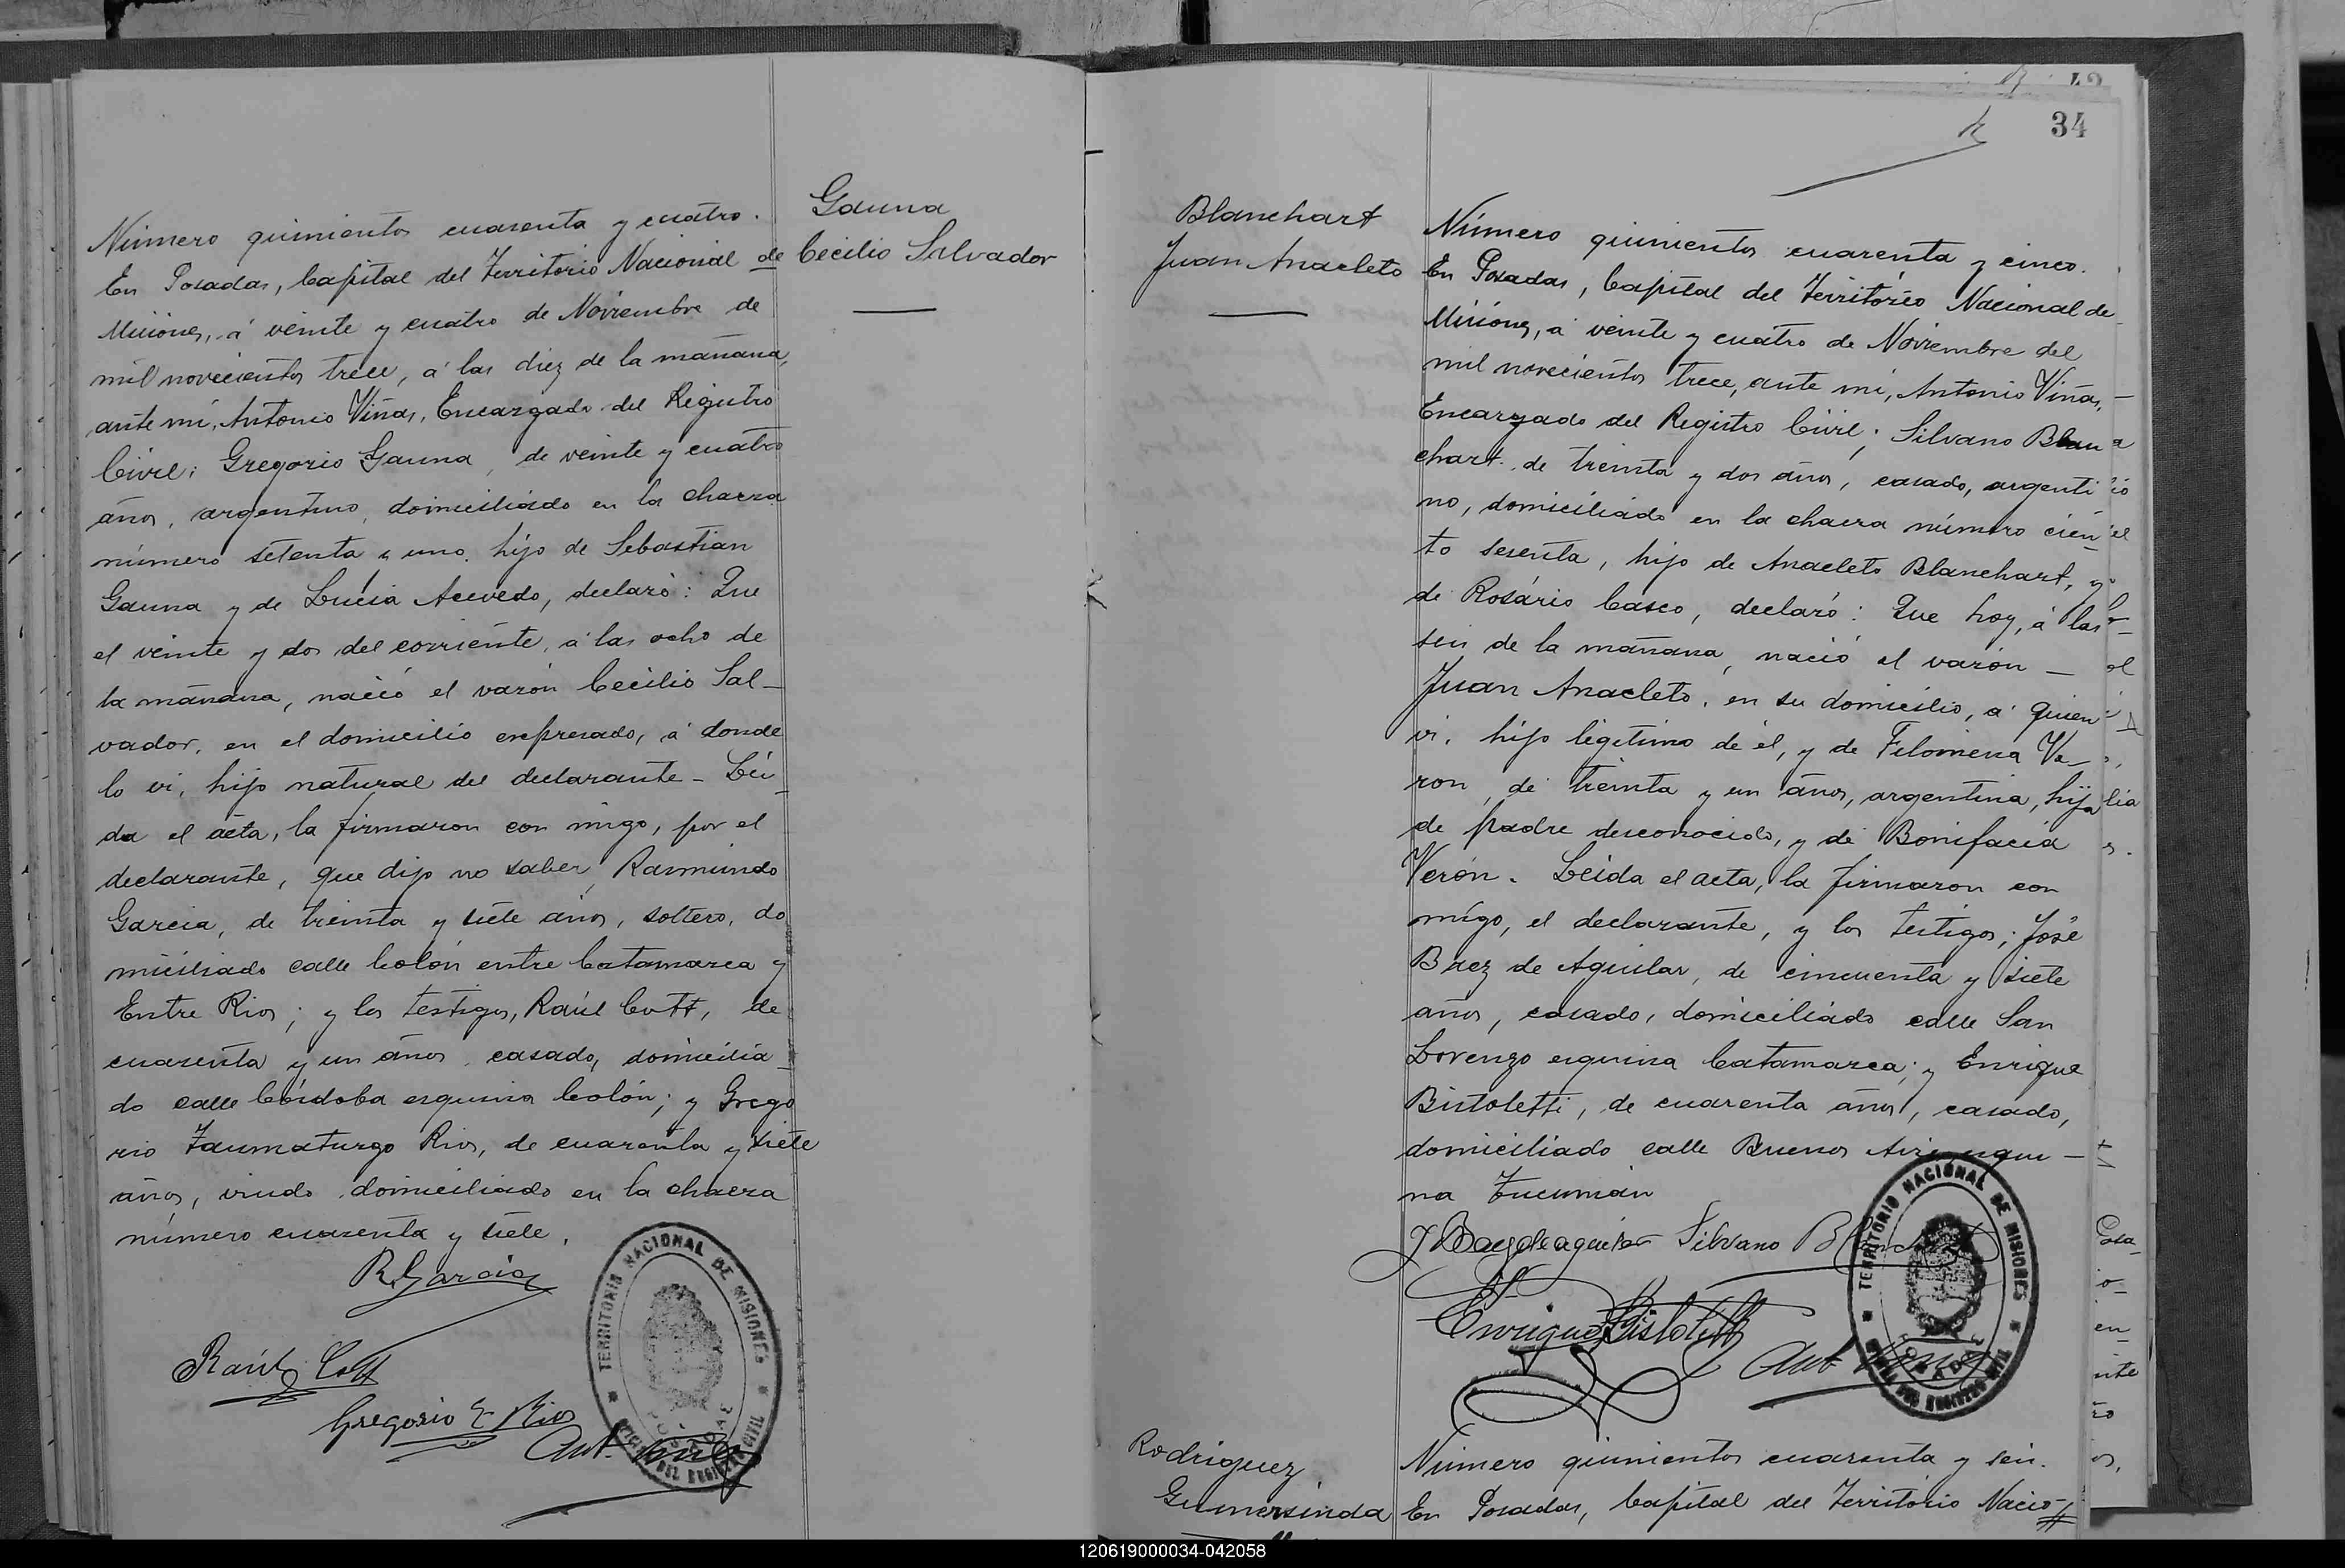 Gauna
Cecilio Salvador
Número quinientos cuarenta y cuatro.
En Posadas, Capital del Territorio Nacional de
Misiones, á veinte y cuatro de Noviembre de
mil novecientos trece, á las diez de la mañana,
ante mi, Antonio Viñas, Encargado del Registro
Civil; Gregorio Gauna, de veinte y cuatro
años, argentino, domiciliado en la chacra
número setenta y uno, hijo de Sebastian
Gauna y de Lucia Acevedo, declaró: Que
el veinte y dos del corriente, á las ocho de
la mañana, nació el varón Cecilio Sal-
vador, en el domicilio expresado, á donde
lo vi, hijo natural del declarante - Léi-
da el acta, la firmaron con migo, por el
declarante, que dijo no saber, Raimundo
Garcia, de treinta y siete años, soltero, do
miciliado calle Colón entre Catamarca y
Entre Rios; y los testigos, Raúl Cott, de
cuarenta y un años, casado, domicilia-
do calle Córdoba esquina Colón; y Grego
rio Taumaturgo Rios, de cuarenta y siete
años, viudo, domiciliado en la chacra
número cuarenta y siete.
R. Garcia
Raúl Cott
Gregorio T. Rios
Ant. Viñas
TERRITORIO NACIONAL DE MISIONES
POSADAS
DEL REGISTRO CIVIL
34
Blanchart
Juan Anacleto
Número quinientos cuarenta y cinco.
En Posadas, Capital del Territorio Nacional de
Misiones, á veinte y cuatro de Noviembre del
mil novecientos trece, ante mi, Antonio Viñas,
Encargado del Registro Civil; Silvano Blan
chart, de treinta y dos años, casado, argenti
no, domiciliado en la chacra número cien-
to sesenta, hijo de Anacleto Blanchart, y
de Rosário Casco, declaró: Que hoy, á las
seis de la mañana, nació el varón —
Juan Anacleto, en su domicilio, á quien
vi, hijo legitimo de él, y de Filomena Ve-
ron, de treinta y un años, argentina, hija
de padre desconocido, y de Bonifacia
Verón. Léida el acta, la firmaron con
migo, el declarante, y los testigos; José
Baez de Aguilar, de cincuenta y siete
años, casado, domiciliado calle San
Lorenzo esquina Catamarca; y Enrique
Bistoletti, de cuarenta años, casado,
domiciliado calle Buenos Aires esqui-
na Tucumán
J Baez de aguilar Silvano Blanchart
Enrique Bistoletti
Ant Viñas
TERRITORIO NACIONAL DE MISIONES
POSADAS
DEL REGISTRO CIVIL
Rodriguez
Gumersinda
Número quinientos cuarenta y seis.
En Posadas, Capital del Territorio Nacio-
120619000034-042058